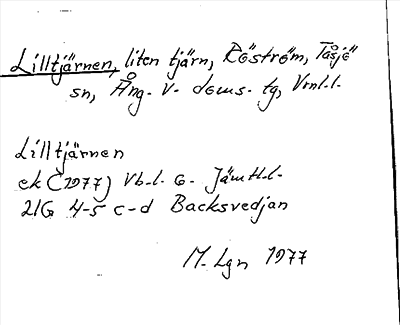 Lilltjärnen, liten tjärn, Röström, Tåsjö
sn, Ång. v. doms. tg, Vrnl.l.
Lilltjärnen
ek (1977) Vb.l. o. Jämtl.l.
21G 4-5 c-d Backsvedjan
M. Lgn 1977